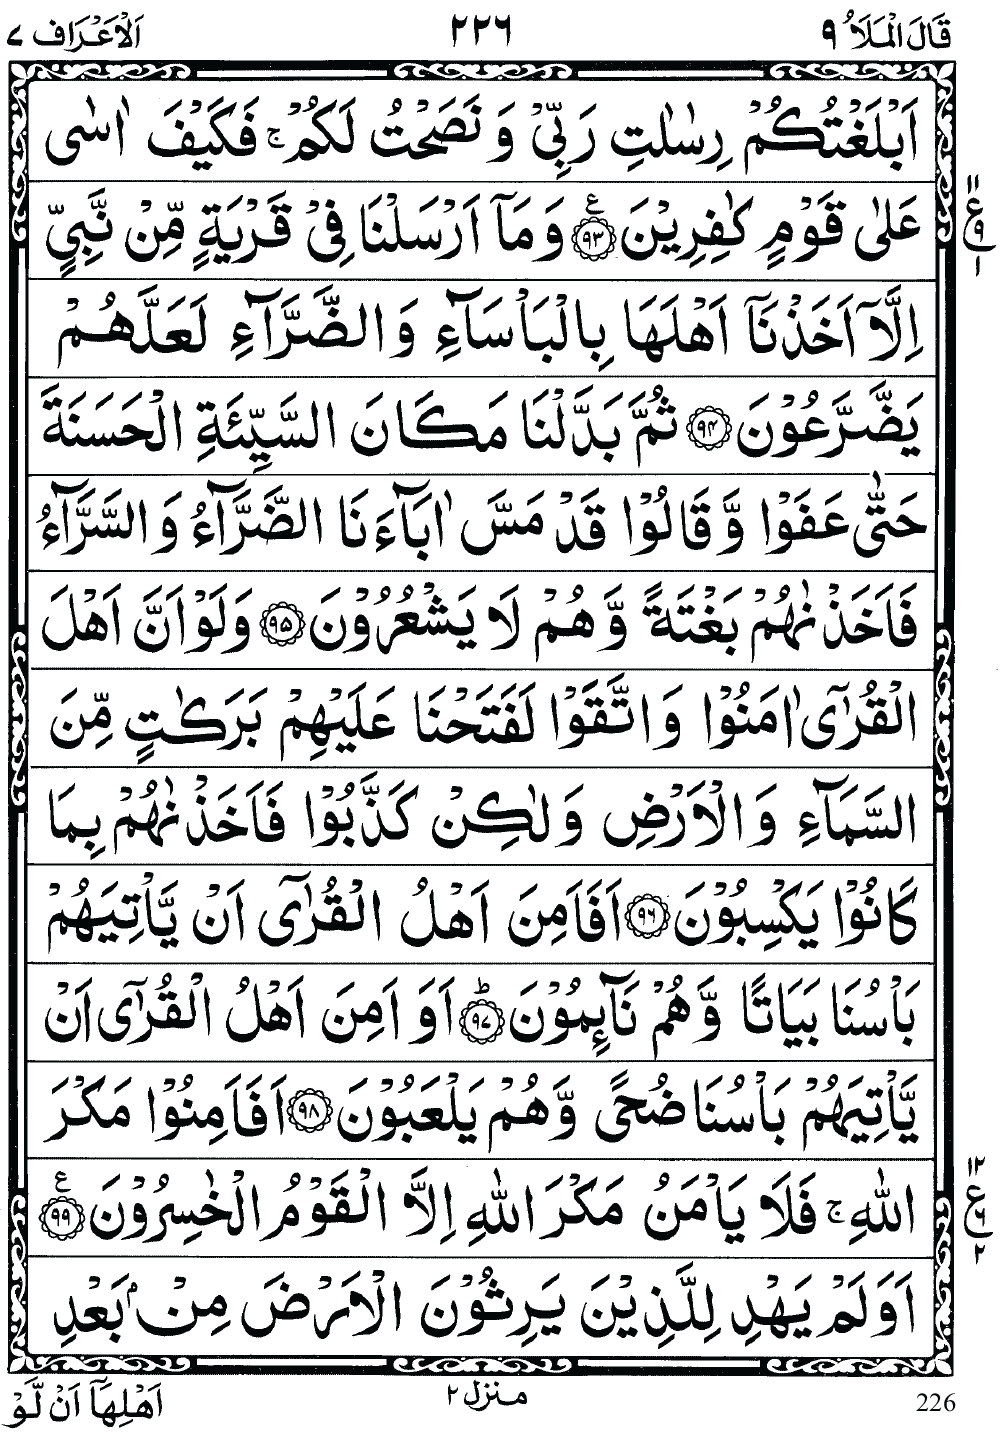 قَالَ الْمَلَاُ ۹
۲۲۶
اَلْاَعْرَاف ۷
اَبْلَغْتُكُمْ رِسٰلٰتِ رَبِّيْ وَ نَصَحْتُ لَكُمْ ۚ فَكَيْفَ اٰسٰى
عَلٰى قَوْمٍ كٰفِرِيْنَ ۹۳ ع وَ مَاۤ اَرْسَلْنَا فِيْ قَرْيَةٍ مِّنْ نَّبِيٍّ
اِلَّاۤ اَخَذْنَاۤ اَهْلَهَا بِالْبَاْسَآءِ وَ الضَّرَّآءِ لَعَلَّهُمْ
يَضَّرَّعُوْنَ ۹۴ ثُمَّ بَدَّلْنَا مَكَانَ السَّيِّئَةِ الْحَسَنَةَ
حَتّٰى عَفَوْا وَّ قَالُوْا قَدْ مَسَّ اٰبَآءَنَا الضَّرَّآءُ وَ السَّرَّآءُ
فَاَخَذْنٰهُمْ بَغْتَةً وَّ هُمْ لَا يَشْعُرُوْنَ ۹۵ وَ لَوْ اَنَّ اَهْلَ
الْقُرٰۤى اٰمَنُوْا وَ اتَّقَوْا لَفَتَحْنَا عَلَيْهِمْ بَرَكٰتٍ مِّنَ
السَّمَآءِ وَ الْاَرْضِ وَ لٰكِنْ كَذَّبُوْا فَاَخَذْنٰهُمْ بِمَا
كَانُوْا يَكْسِبُوْنَ ۹۶ اَفَاَمِنَ اَهْلُ الْقُرٰۤى اَنْ يَّاْتِيَهُمْ
بَاْسُنَا بَيَاتًا وَّ هُمْ نَآىِٕمُوْنَ ۹۷ ؕ اَوَ اَمِنَ اَهْلُ الْقُرٰۤى اَنْ
يَّاْتِيَهُمْ بَاْسُنَا ضُحًى وَّ هُمْ يَلْعَبُوْنَ ۹۸ اَفَاَمِنُوْا مَكْرَ
اللّٰهِ ۚ فَلَا يَاْمَنُ مَكْرَ اللّٰهِ اِلَّا الْقَوْمُ الْخٰسِرُوْنَ ۹۹ ع
اَوَ لَمْ يَهْدِ لِلَّذِيْنَ يَرِثُوْنَ الْاَرْضَ مِنْۢ بَعْدِ
۱۱
ع
۹
۱
۱۲
ع
۶
۲
226
منزل ۲
اَهْلِهَاۤ اَنْ لَّوْ